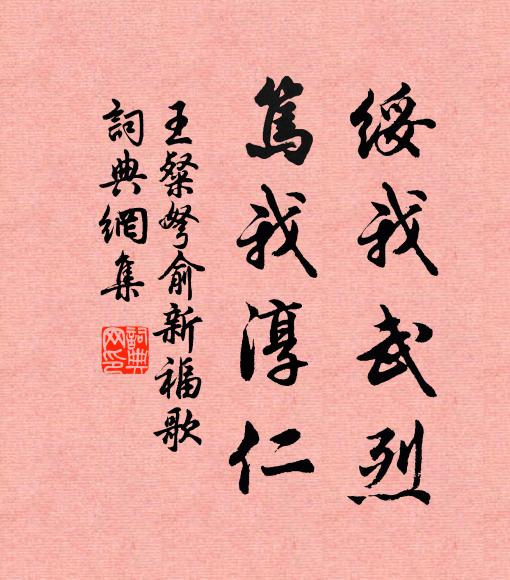 綏我武烈
篤我淳仁
王粲弩俞新福歌
詞典網集
詞典网印